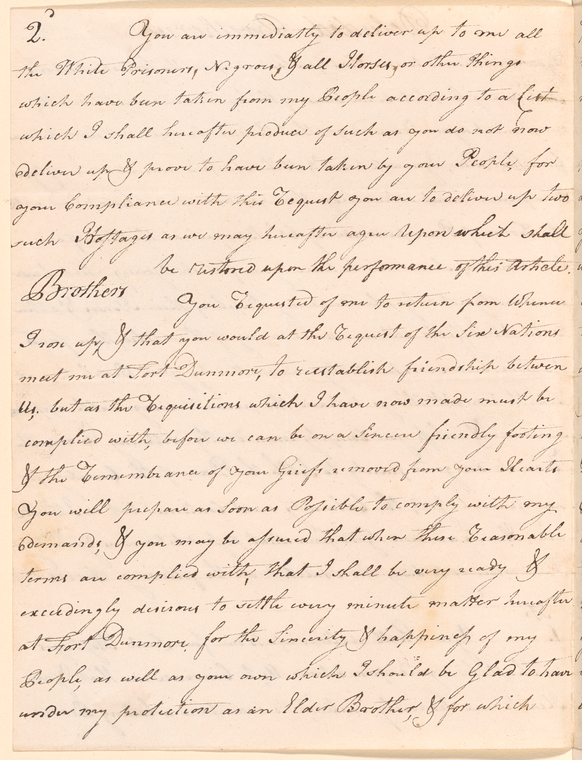 2.d You are immediatly to deliver up to me all
the White Prisoners, Negroes, & all Horses, or other things
which have been taken from my People according to a List
which I shall hereafter produce of such as you do not now
deliver up & prove to have been taken by your People, for
your Compliance with this Request you are to deliver up two
such Hostages as we may hereafter agree Upon which shall
be restored upon the performance of this Article.
Brothers
You Requested of me to return from Whence
I rose up, & that you would at the Request of the Six Nations
meet me at Fort Dunmore, to reestablish friendship between
Us; but as the Requisitions which I have now made must be
complied with, before we can be on a Sincere friendly footing
& the Remembrance of your Griefs removed from your Hearts
You will prepare as Soon as Possible to comply with my
demands, & you may be assured that when these Reasonable
terms are complied with that I shall be very ready &
exceedingly desirous to settle every minute matter hereafter
at Fort Dunmore for the Sincerity & happiness of my
People, as well as your own which I should be Glad to have
under my protection as an Elder Brother, & for which